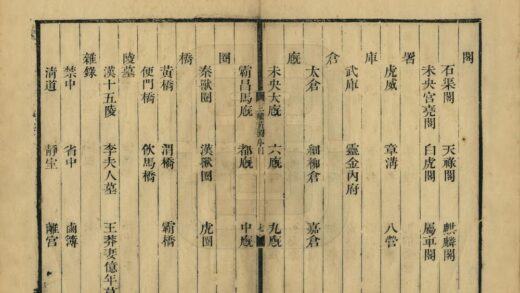 閣
石渠閣 天祿閣 麒麟閣
未央宮亮閣 白虎閣 屬車閣
署
虎威 章溝 八營
庫
武庫 靈金內府
倉
太倉 細柳倉 嘉倉
廄
未央大廄 六廄 九廄
三輔黃圖 目 七
霸昌馬廄 都廄 中廄
圈
秦獸圈 漢獸圈 虎圈
橋
黃橋 渭橋 霸橋
便門橋 飲馬橋
陵墓
漢十五陵 李夫人墓 王莽妻億年
雜錄
禁中 省中 鹵簿
清道 靜室 離宮